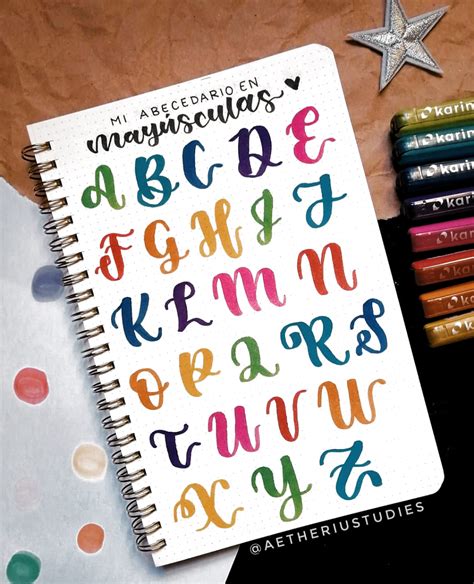 MI ABECEDARIO EN
mayúsculas
A B C D E
F G H I J
K L M N
O P Q R S
T U V W
X Y Z
@AETHERIUSTUDIES
karin
karin
karin
karin
karin
karin
karin
karin